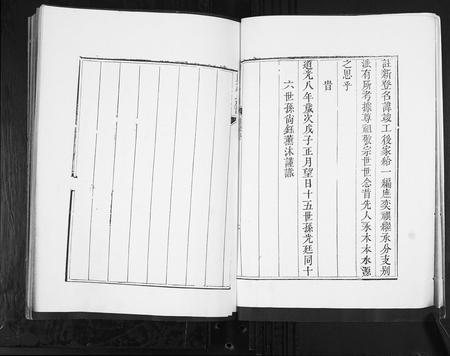 註新登名諱竣工後家給一編庶奕禩繩承分支別
派有所考據尊祖敬宗世世念昔先人永木本水源
之思乎
旹
道光八年歲次戊子正月望日十五世孫光廷同十
六世孫尚鈺薰沐謹識